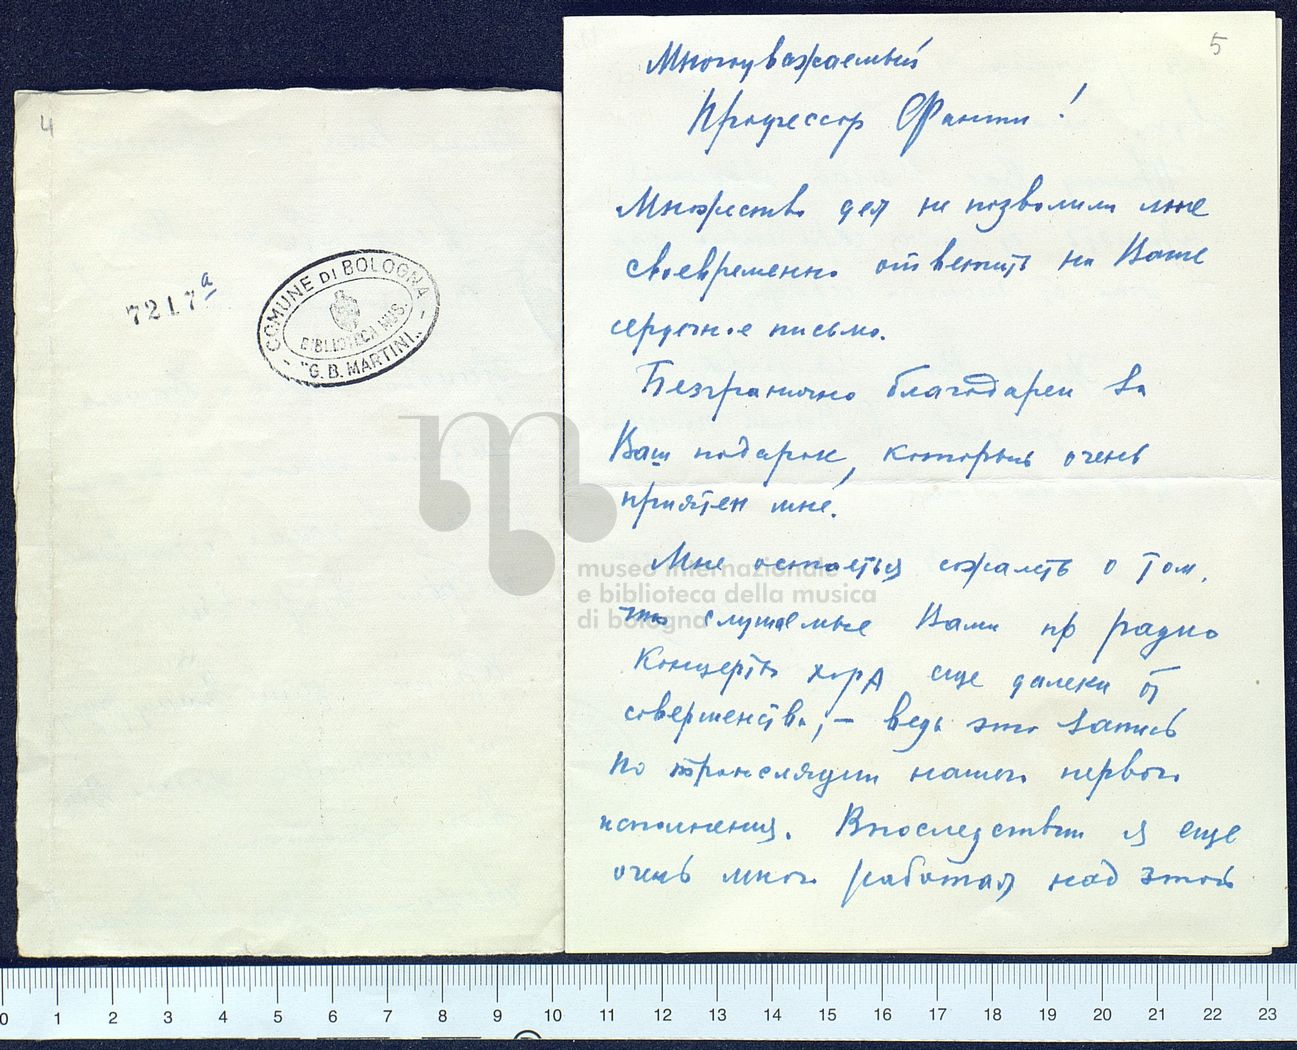 4
7217a
COMUNE DI BOLOGNA
BIBLIOTECA MUS.
- "G. B. MARTINI„ -
5
Многоуважаемый
Профессор Фанти!
Множество дел не позволили мне
своевременно ответить на Ваше
сердечное письмо.
Безгранично благодарен за
Ваш подарок, который очень
приятен мне.
Мне остаётся сожалеть о том,
что слушаемые Вами по радио
концерты хора еще далеки от
совершенства, – ведь это запись
по трансляции нашего первого
исполнения. Впоследствии я еще
очень много работал над этой
museo internazionale
e biblioteca della musica
di bologna
0 1 2 3 4 5 6 7 8 9 10 11 12 13 14 15 16 17 18 19 20 21 22 23